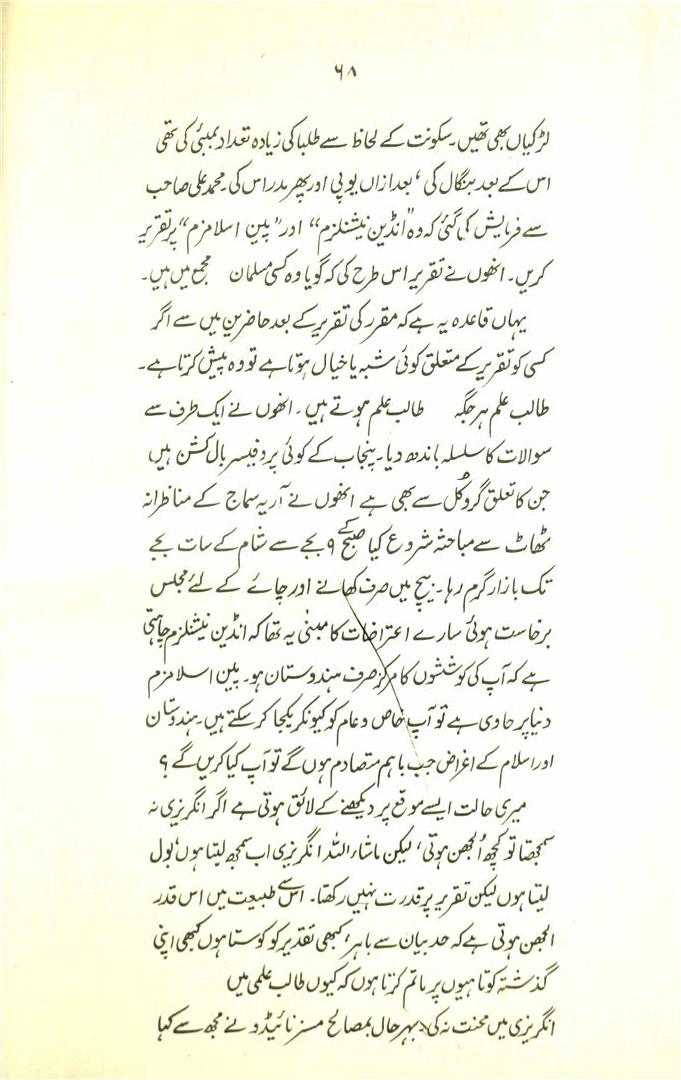 ۶۸
لڑکیاں بھی تھیں۔ سکونت کے لحاظ سے طلبا کی زیادہ تعداد بمبئی کی تھی
اس کے بعد بنگال کی، بعد ازاں یوپی اور پھر مدراس کی۔ محمد علی صاحب
سے فرمایش کی گئی کہ وہ "انڈین نیشنلزم" اور "پین اسلامزم" پر تقریر
کریں۔ انھوں نے تقریر اس طرح کی کہ گویا وہ کسی مسلمان مجمع میں ہیں۔
یہاں قاعدہ یہ ہے کہ مقرر کی تقریر کے بعد حاضرین میں سے اگر
کسی کو تقریر کے متعلق کوئی شبہ یا خیال ہوتا ہے تو وہ پیش کرتا ہے۔
طالب علم ہر جگہ طالب علم ہوتے ہیں۔ انھوں نے ایک طرف سے
سوالات کا سلسلہ باندھ دیا۔ پنجاب کے کوئی پروفیسر بال کشن ہیں
جن کا تعلق گروکل سے بھی ہے انھوں نے آریہ سماج کے مناظرانہ
ٹھاٹ سے مباحثہ شروع کیا صبح کے ۹ بجے سے شام کے سات بجے
تک بازار گرم رہا۔ بیچ میں صرف کھانے اور چائے کے لئے مجلس
برخاست ہوئی سارے اعتراضات کا مبنٰی یہ تھا کہ انڈین نیشنلزم چاہتی
ہے کہ آپ کی کوششوں کا مرکز صرف ہندوستان ہو۔ پین اسلامزم
دنیا پر حاوی ہے تو آپ خاص و عام کو کیونکر یکجا کر سکتے ہیں۔ ہندوستان
اور اسلام کے اغراض جب باہم متصادم ہوں گے تو آپ کیا کریں گے؟
میری حالت ایسے موقع پر دیکھنے کے لائق ہوتی ہے اگر انگریزی نہ
سمجھتا تو کچھ اُلجھن ہوتی، لیکن ماشاء اللہ انگریزی اب سمجھ لیتا ہوں، بول
لیتا ہوں لیکن تقریر پر قدرت نہیں رکھتا۔ اس سے طبیعت میں اس قدر
الجھن ہوتی ہے کہ حد بیان سے باہر، کبھی تقدیر کو کوستا ہوں کبھی اپنی
گذشتہ کوتاہیوں پر ماتم کرتا ہوں کہ کیوں طالب علمی میں
انگریزی میں محنت نہ کی۔ بہر حال بمصالح مسز نائیڈو نے مجھ سے کہا